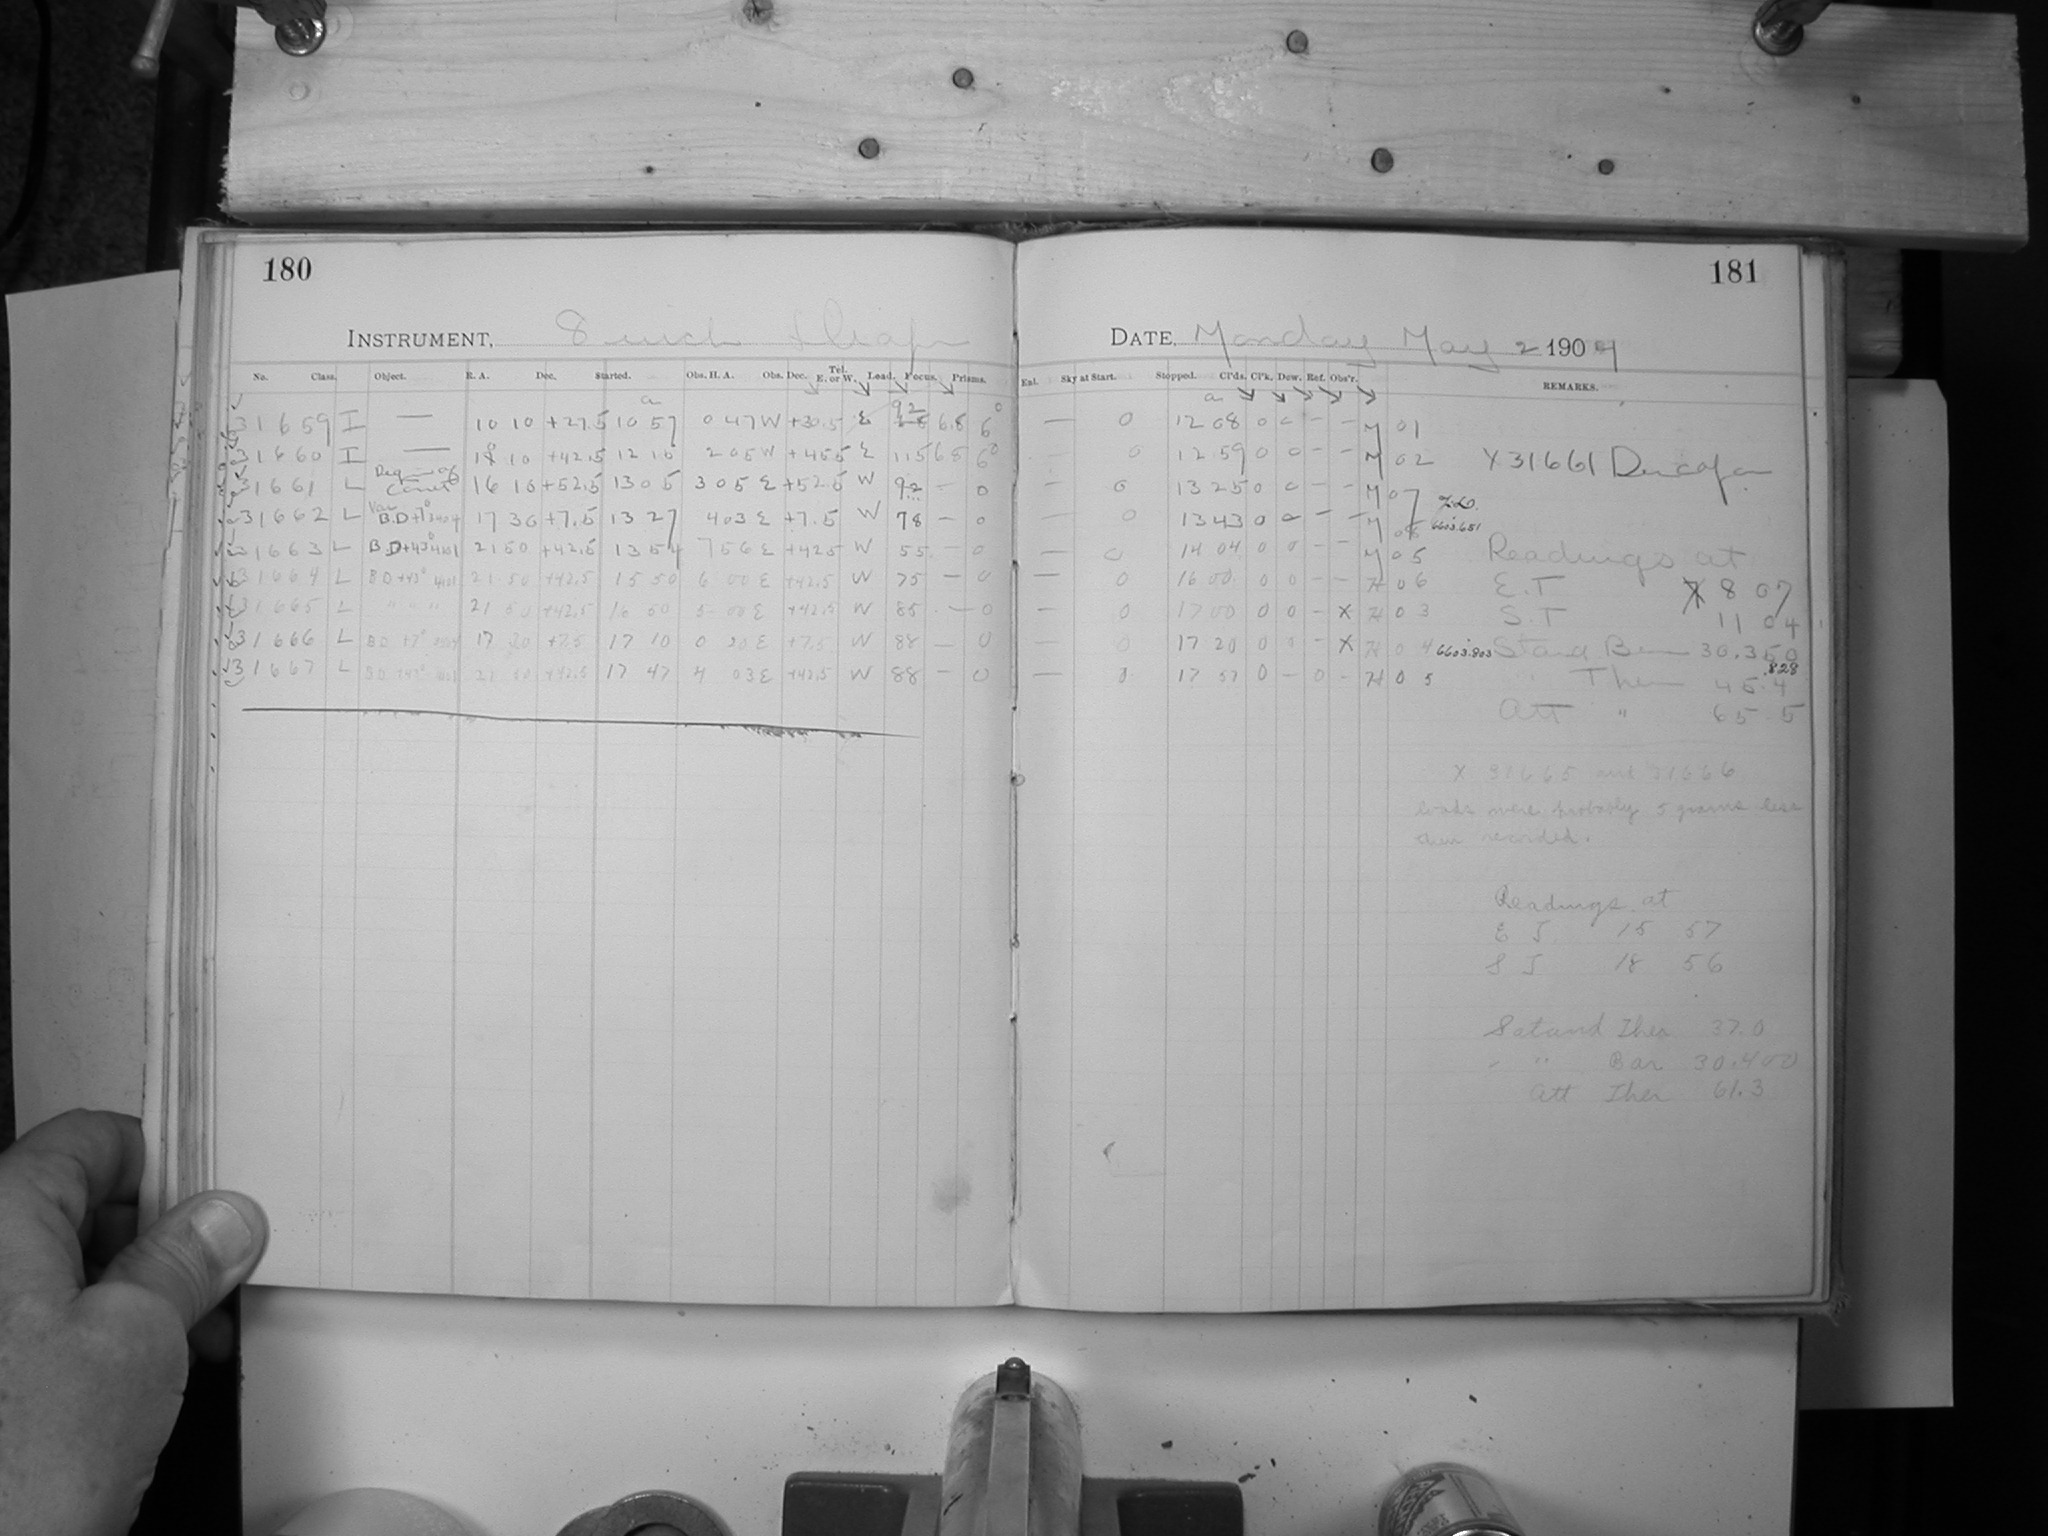 180
181
INSTRUMENT, 8 inch Draper
DATE, Monday May 2 1904
No. Class. Object. R. A. Dec. Started. Obs. H. A. Obs. Dec. Tel. E. or W. Load. Focus. Prisms.
Eml. Sky at Start. Stopped. Cl'ds. Cl'k. Dew. Ref. Obs'r. REMARKS.
31659 I — 10 10 +27.5 10 57 0 47 W +30.5 E 92 6.8 6° — 0 12 08 0 0 - - M 01
31660 I — 10 10 +42.5 12 15 2 05 W +45.5 E 115 6.8 6° — 0 12 59 0 0 - - M 02
X 31661
31661 L Comet 16 10 +52.5 13 05 3 05 E +52.5 W 92 — 0 — 0 13 25 0 0 - - M 07
31662 L Var B.D +7° 3404 17 30 +7.5 13 27 4 03 E +7.5 W 78 — 0 — 0 13 43 0 0 - - M 06 6603.651
31663 L B D +43° 4101 21 50 +42.5 13 54 7 56 E +42.5 W 55 — 0 — 0 14 04 0 0 - - M 05
Readings at
31664 L B D +43° 4101 21 50 +42.5 15 50 6 00 E +42.5 W 75 — 0 — 0 16 00 0 0 - - H 06
E. T 8 07
31665 L " " " 21 50 +42.5 16 50 5 00 E +42.5 W 85 — 0 — 0 17 00 0 0 - X H 03
S. T 11 04
31666 L B D +7° 3404 17 30 +7.5 17 10 0 20 E +7.5 W 88 — 0 — 0 17 20 0 0 - X H 04 6603.803
Stand Bar 30.350
.828
31667 L B D +43° 4101 21 50 +42.5 17 47 4 03 E +42.5 W 88 — 0 — 0 17 57 0 - 0 - H 05
" Ther 45.4
Att " 65.5
X 31665 and 31666
loads were probably 5 grams less
than recorded.
Readings at
E T. 15 57
S T 18 56
Satand Ther 37.0
" " Bar 30.400
Att Ther 61.3